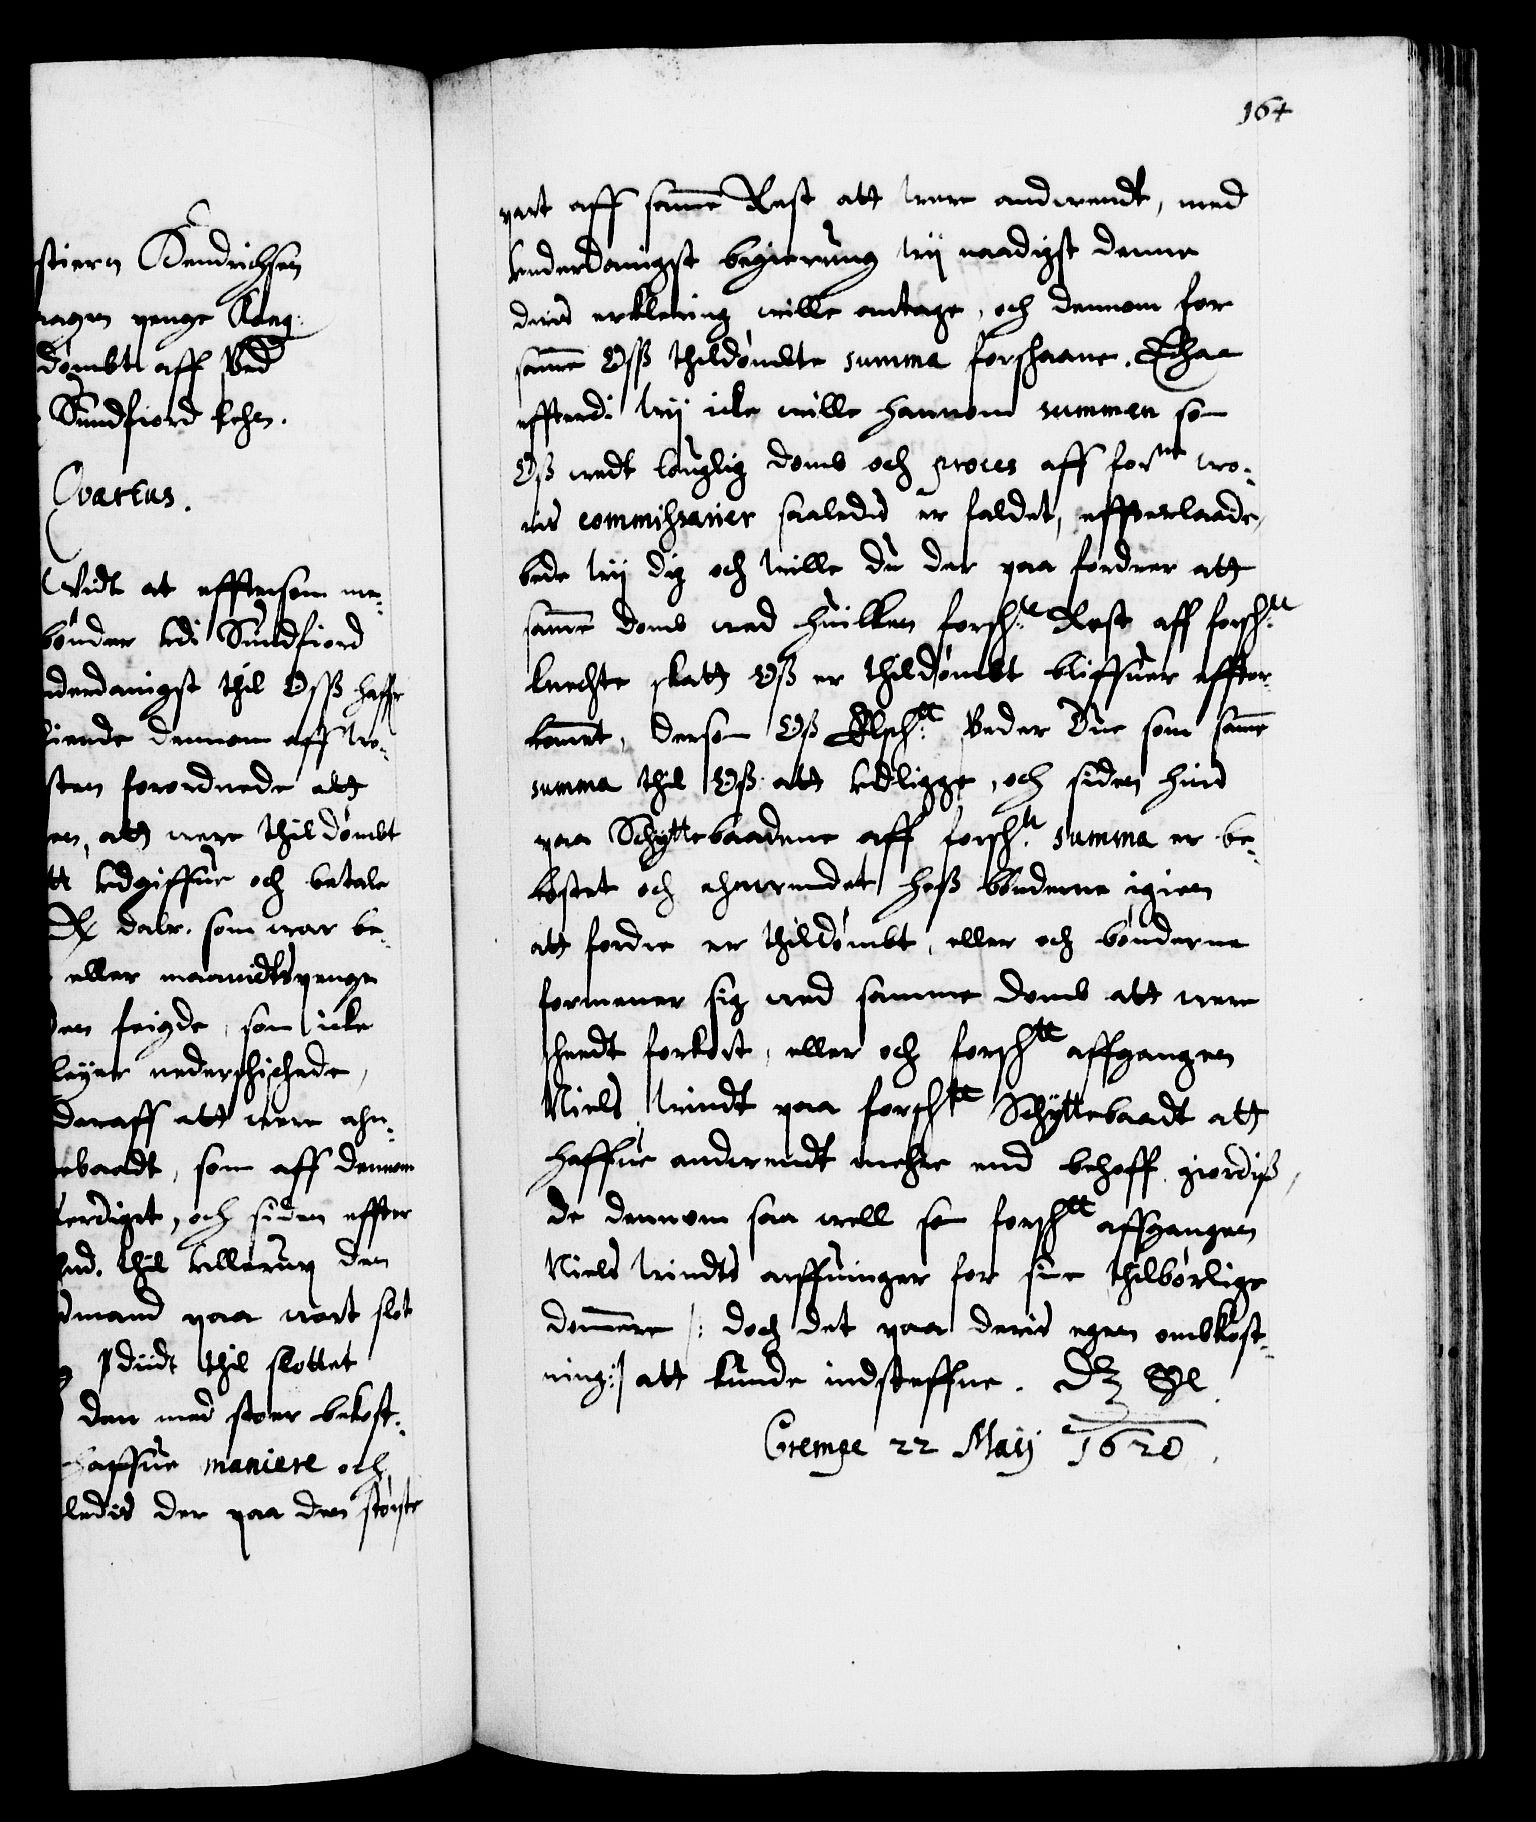 stiern Hendrichsen
penge Kong:
dømbt aff
Sundfiord lehn.
Qvartus.
Vidt at efftersom me-
bønder udi Sundfiord
nderdanigst thil Osß haffr
kiende dennom aff wo-
sten forordnede att
en, att were thildømbt
tt udgiffue och betale
dalr. som war be-
eller maanidtspenge
den feigde, som icke
leyer nederschichede,
deraff att were ahn-
ebaadt, som aff dennom
ferdiget, och siden effter
thil den
dmand paa wort slot
thil slottet
den med stoer bekost-
haffue maniere och
ledis der paa den største
164
part aff samme Rest att were andwendt, med
underdanigst begierung wij naadigst denne
deris erklering wille antage, och dennom for
samme Osß thildømbte summa forschaane. Tha
effterdi wij icke wille hannom summen som
Oß wedt louglig domb och proces aff forne wo-
ris commissarier saaledis er faldet, effterlaade,
bede wij dig och wille du der paa fordrer att
samme domb wed huilken forsch:tt Rest aff forsch:tt
knechte skatt Oß er thildømbt bliffuer effter-
kommet, dersom Oß Elsch:tt Peder Due som samme
summa thil Oß att udligge, och siden huid
paa Schyttebaadene aff forsch:tt summa er be-
kostet och ahnwendet hoß bønderne igien
att fordre er thildømbt, eller och bønderne
formener sig wed samme domb att were
scheedt forkort, eller och forschtt affgangen
Niels Windt paa forschtt Schyttebaadt att
haffue andwendt mehre end behoff giordiß,
de dennom saa well som forschtt affgangen
Niels Windts arffuinger for sine thilbørlige
dommere /: doch det paa deris egen ombkost-
ning:/ att kunde indsteffne.
Crempe 22 Maij 1628.